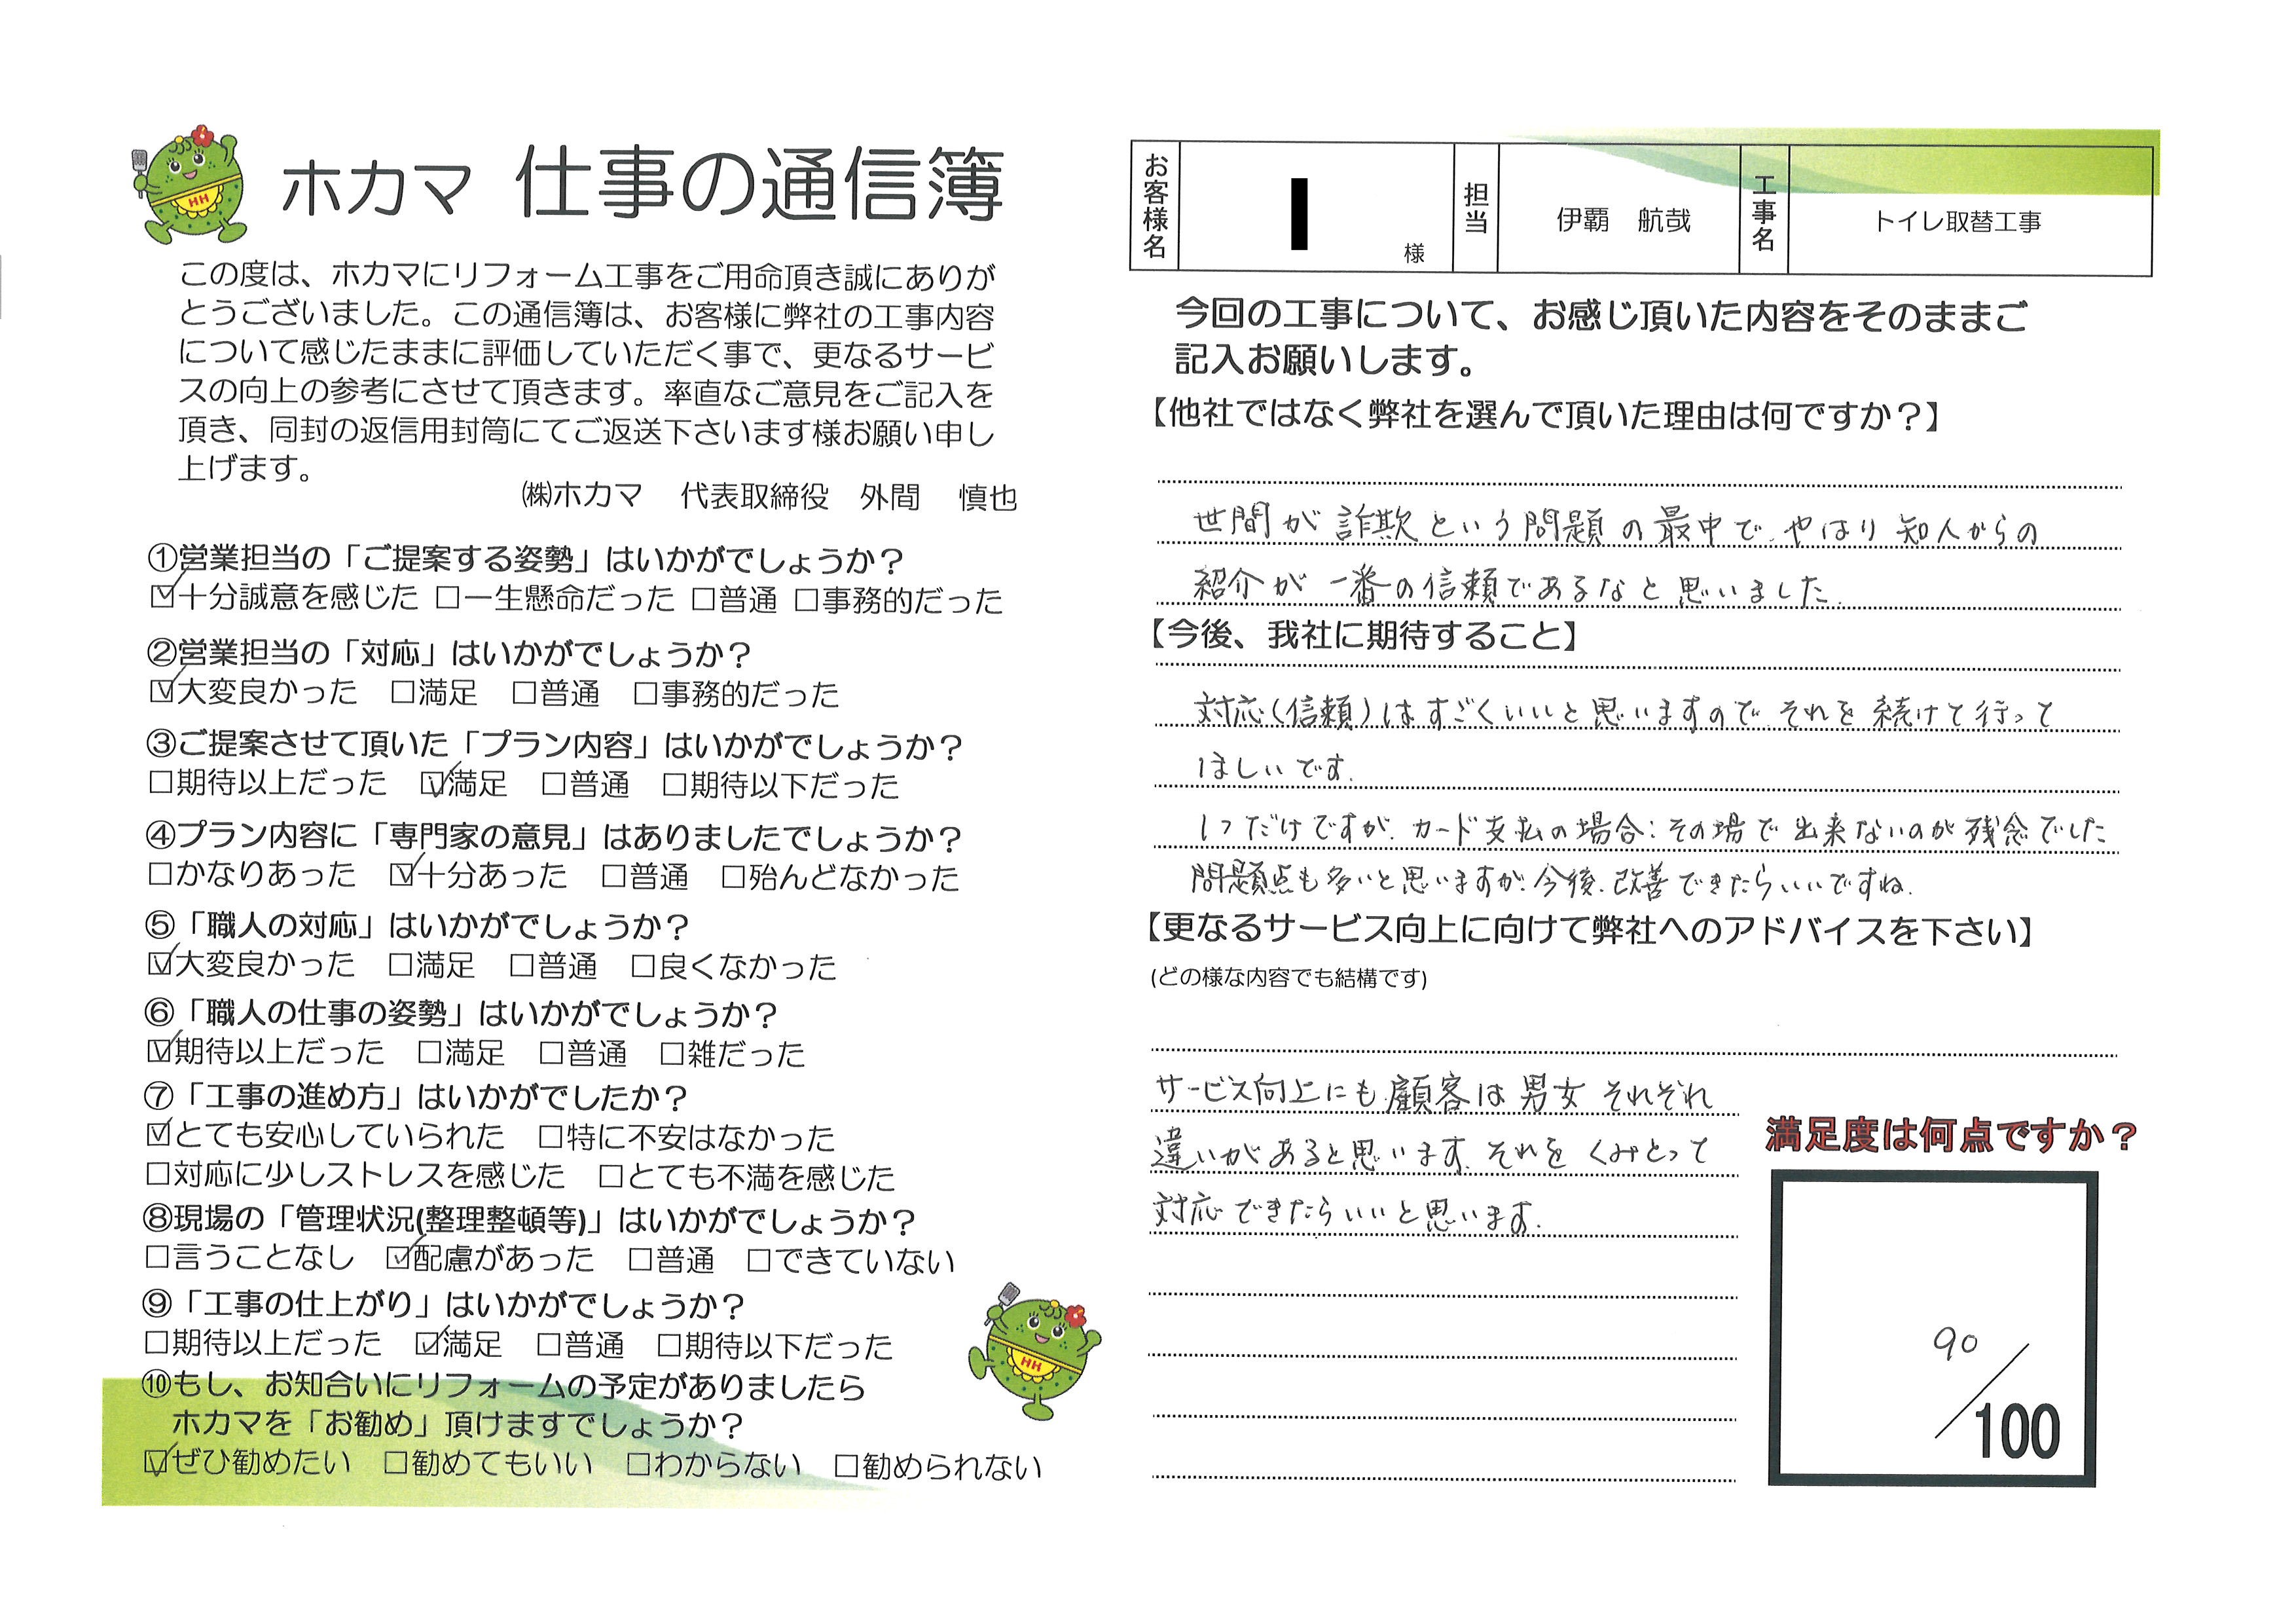 ホカマ 仕事の通信簿
この度は、ホカマにリフォーム工事をご用命頂き誠にありが
とうございました。この通信簿は、お客様に弊社の工事内容
について感じたままに評価していただく事で、更なるサービ
スの向上の参考にさせて頂きます。率直なご意見をご記入を
頂き、同封の返信用封筒にてご返送下さいます様お願い申し
上げます。
㈱ホカマ 代表取締役 外間 慎也
①営業担当の「ご提案する姿勢」はいかがでしょうか？
☑十分誠意を感じた □一生懸命だった □普通 □事務的だった
②営業担当の「対応」はいかがでしょうか？
☑大変良かった □満足 □普通 □事務的だった
③ご提案させて頂いた「プラン内容」はいかがでしょうか？
□期待以上だった ☑満足 □普通 □期待以下だった
④プラン内容に「専門家の意見」はありましたでしょうか？
□かなりあった ☑十分あった □普通 □殆んどなかった
⑤「職人の対応」はいかがでしょうか？
☑大変良かった □満足 □普通 □良くなかった
⑥「職人の仕事の姿勢」はいかがでしょうか？
☑期待以上だった □満足 □普通 □雑だった
⑦「工事の進め方」はいかがでしたか？
☑とても安心していられた □特に不安はなかった
□対応に少しストレスを感じた □とても不満を感じた
⑧現場の「管理状況(整理整頓等)」はいかがでしょうか？
□言うことなし ☑配慮があった □普通 □できていない
⑨「工事の仕上がり」はいかがでしょうか？
□期待以上だった ☑満足 □普通 □期待以下だった
⑩もし、お知合いにリフォームの予定がありましたら
ホカマを「お勧め」頂けますでしょうか？
☑ぜひ勧めたい □勧めてもいい □わからない □勧められない
HH
HH
お客様名 様 担当 伊覇 航哉 工事名 トイレ取替工事
今回の工事について、お感じ頂いた内容をそのままご
記入お願いします。
【他社ではなく弊社を選んで頂いた理由は何ですか？】
世間が詐欺という問題の最中で、やはり知人からの
紹介が一番の信頼であるなと思いました。
【今後、我社に期待すること】
対応(信頼)はすごくいいと思いますので、それを続けて行って
ほしいです。
1つだけですが、カード支払の場合：その場で出来ないのが残念でした
問題点も多いと思いますが、今後、改善できたらいいですね。
【更なるサービス向上に向けて弊社へのアドバイスを下さい】
(どの様な内容でも結構です)
サービス向上にも顧客は男女それぞれ
違いがあると思います。それをくみとって
対応できたらいいと思います。
満足度は何点ですか？
90／100